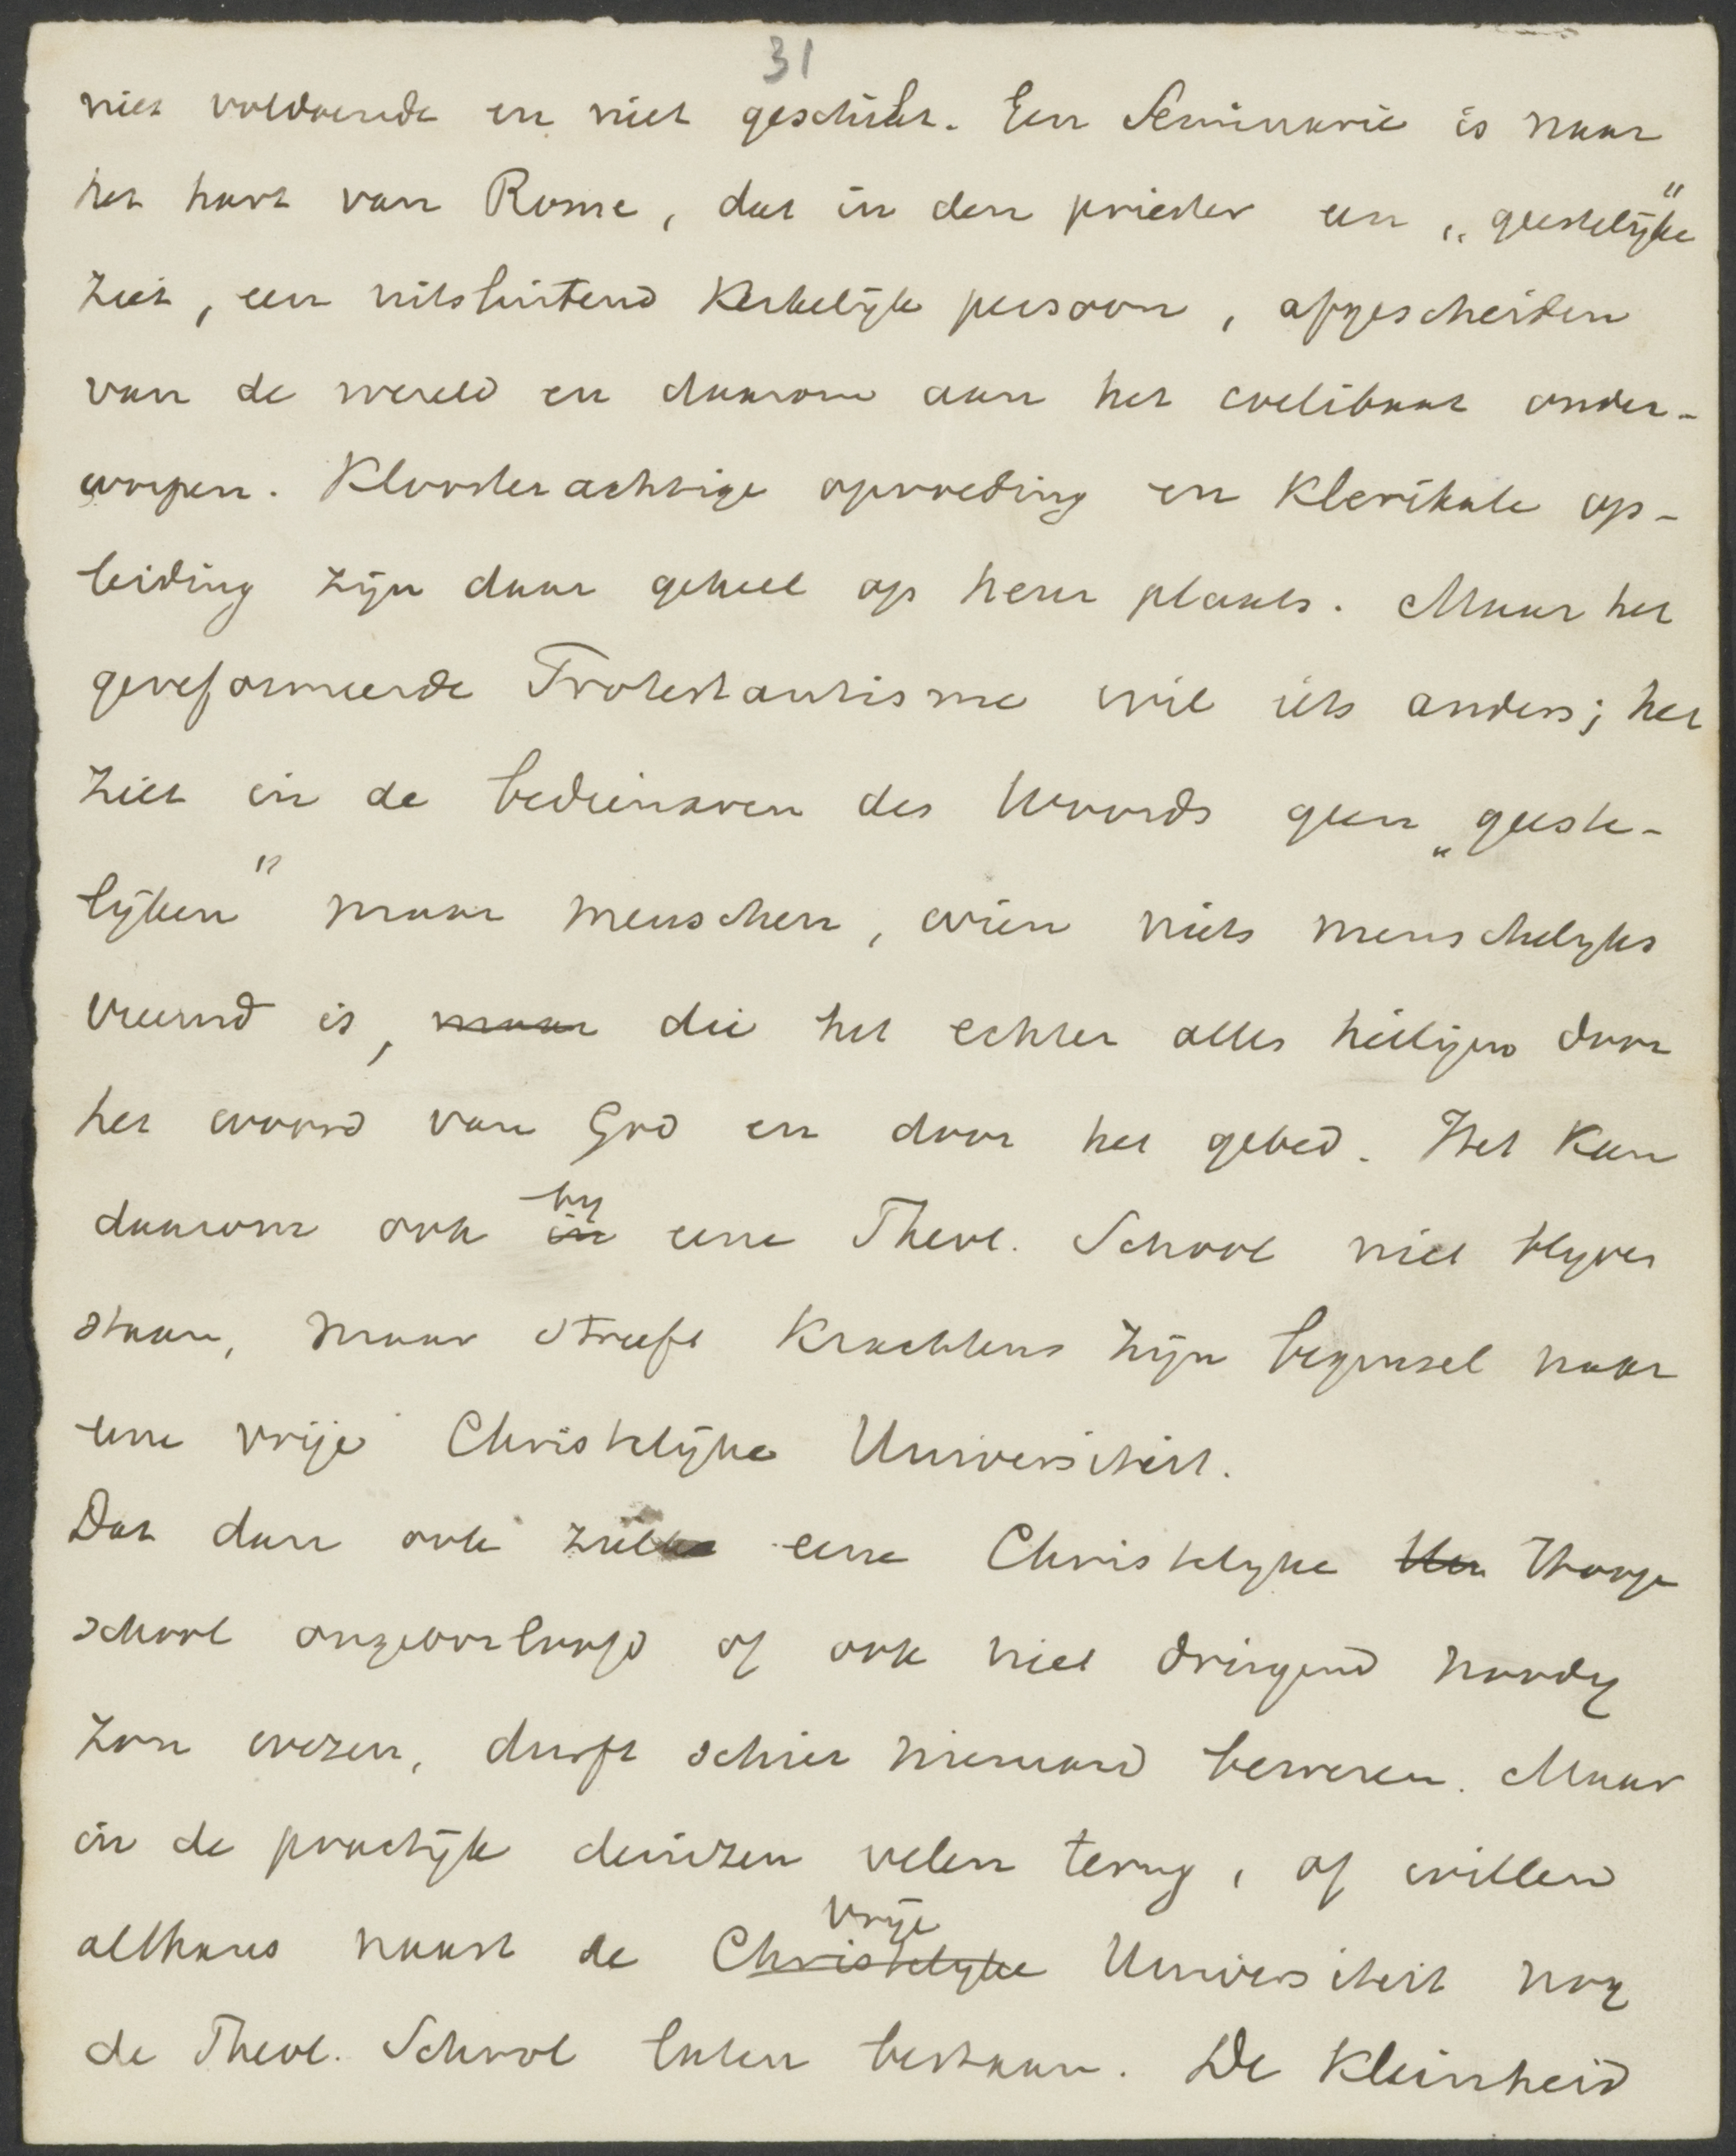 31
niet voldoende en niet geschikt. Een Seminarie is naar
het hart van Rome, dat in den priester een „geestelijke"
ziet, een uitsluitend kerkelijk persoon, afgescheiden
van de wereld en daarom aan het coelibaat onder-
worpen. Kloosterachtige opvoeding en klerikale op-
leiding zijn daar geheel op heur plaats. Maar het
gereformeerde Protestantisme wil iets anders; het
ziet in de bedienaren des Woords geen „geeste-
lijken" maar menschen, wien niets menschelijks
vreemd is, maar die het echter alles heiligen door
het woord van God en door het gebed. Het kan
daarom ook in by eene Theol. School niet blyven
staan, maar streeft krachtens zijn beginsel naar
eene vrije Christelijke Universiteit.
Dat dan ook zulke eene Christelyke Uni Hooge
school ongeoorloofd of ook niet dringend noodig
zou wezen, durft schier niemand beweren. Maar
in de practijk deinzen velen terug, of willen
althans naast de Christelyke vrije Universiteit nog
de Theol. School laten bestaan. De kleinheid